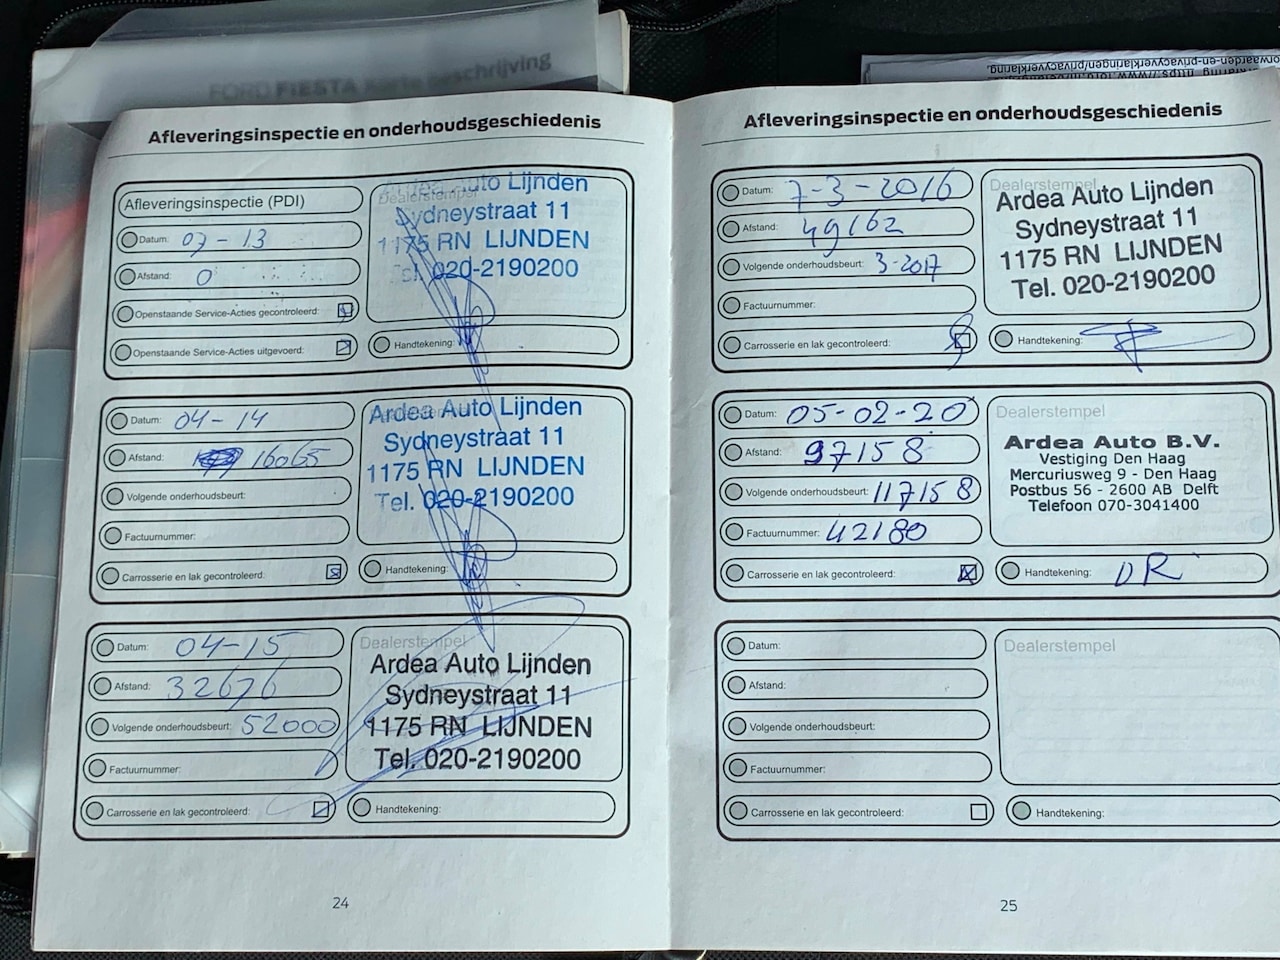 FORD FIESTA Korte beschrijving
Afleveringsinspectie en onderhoudsgeschiedenis
Afleveringsinspectie (PDI)
Datum: 03-13
Afstand: 0
Openstaande Service-Acties gecontroleerd:
Openstaande Service-Acties uitgevoerd:
Dealerstempel
Ardea Auto Lijnden
Sydneystraat 11
1175 RN LIJNDEN
Tel. 020-2190200
Handtekening:
Datum: 04-14
Afstand: 16065
Volgende onderhoudsbeurt:
Factuurnummer:
Carrosserie en lak gecontroleerd:
Ardea Auto Lijnden
Sydneystraat 11
1175 RN LIJNDEN
Tel. 020-2190200
Handtekening:
Datum: 04-15
Afstand: 32676
Volgende onderhoudsbeurt: 52000
Factuurnummer:
Carrosserie en lak gecontroleerd:
Dealerstempel
Ardea Auto Lijnden
Sydneystraat 11
1175 RN LIJNDEN
Tel. 020-2190200
Handtekening:
24
orwaarden-en-privacyverklaringen/privacyverklaring.
Afleveringsinspectie en onderhoudsgeschiedenis
Datum: 7-3-2016
Afstand: 49162
Volgende onderhoudsbeurt: 3-2017
Factuurnummer:
Carrosserie en lak gecontroleerd:
Dealerstempel
Ardea Auto Lijnden
Sydneystraat 11
1175 RN LIJNDEN
Tel. 020-2190200
Handtekening:
Datum: 05-02-20
Afstand: 97158
Volgende onderhoudsbeurt: 117158
Factuurnummer: 42180
Carrosserie en lak gecontroleerd:
Dealerstempel
Ardea Auto B.V.
Vestiging Den Haag
Mercuriusweg 9 - Den Haag
Postbus 56 - 2600 AB Delft
Telefoon 070-3041400
Handtekening: DR
Datum:
Afstand:
Volgende onderhoudsbeurt:
Factuurnummer:
Carrosserie en lak gecontroleerd:
Dealerstempel
Handtekening:
25